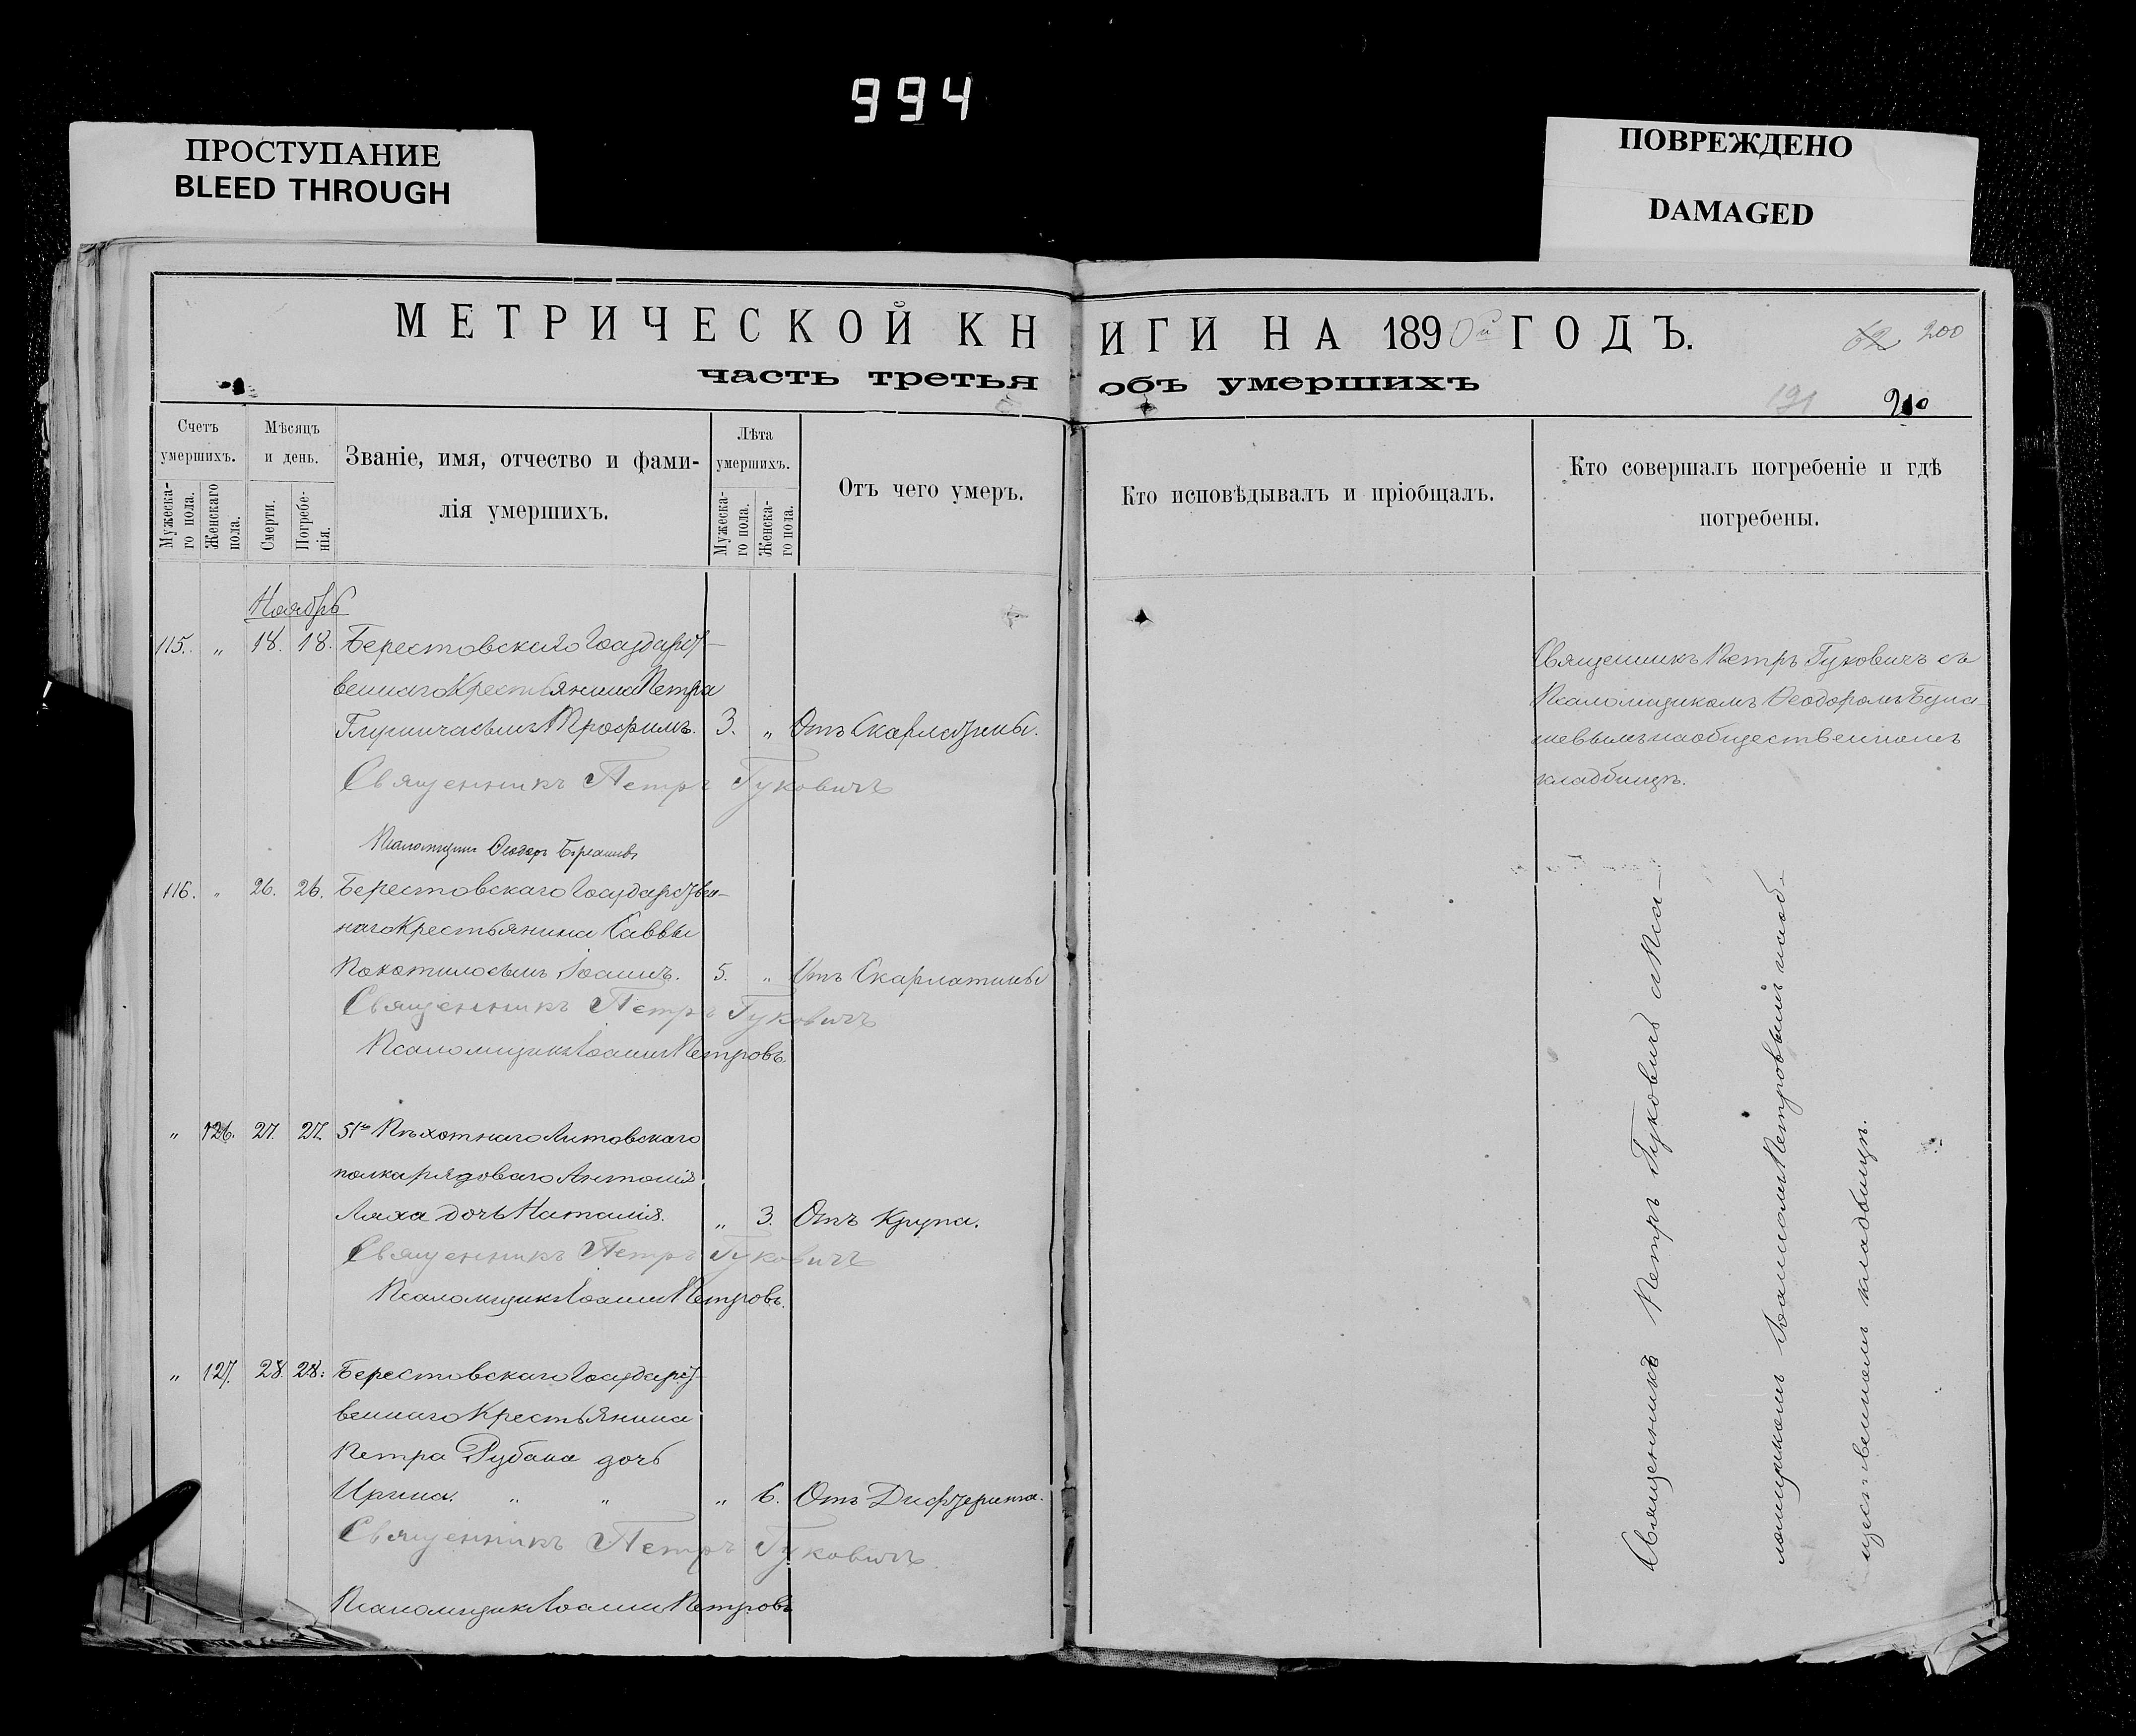 994
ПРОСТУПАНИЕ
BLEED THROUGH
ПОВРЕЖДЕНО
DAMAGED
МЕТРИЧЕСКОЙ КНИГИ НА 1890й ГОДЪ.
62 200
часть третья объ умершихъ
191 210
Счетъ умершихъ.
Мужескаго пола.
Женскаго пола.
Мѣсяцъ и день.
Смерти.
Погребенія.
Званіе, имя, отчество и фамилія умершихъ.
Лѣта умершихъ.
Мужескаго пола.
Женскаго пола.
Отъ чего умеръ.
Кто исповѣдывалъ и пріобщалъ.
Кто совершалъ погребеніе и гдѣ погребены.
Ноябрь
115. „ 18. 18. Берестовскаго Государст-
веннаго Крестьянина Петра
сынъ Трофимъ. 3. „ Отъ Скарлатины.
Священникъ Петръ Гуковичъ
Псаломщикъ Ѳеодоръ
Священникъ Петръ Гуковичъ съ
Псаломщикомъ Ѳеодоромъ
на общественномъ
кладбищѣ.
116. „ 26. 26. Берестовскаго Государствен-
наго Крестьянина Саввы
Покотило сынъ Іоаннъ. 5. „ Отъ Скарлатины
Священникъ Петръ Гуковичъ
Псаломщикъ Іоаннъ Петровъ
„ 126. 27. 27. 51го Пѣхотнаго Литовскаго
полка рядоваго Антонія
Ляха дочь Наталія. „ 3. Отъ Крупа.
Священникъ Петръ Гуковичъ
Псаломщикъ Іоаннъ Петровъ.
„ 127. 28. 28. Берестовскаго Государст-
веннаго Крестьянина
Петра Рубана дочь
Ирина. „ „ „ 6. Отъ Дифтерита.
Священникъ Петръ Гуковичъ
Псаломщикъ Іоаннъ Петровъ
Священникъ Петръ Гуковичъ съ Пса-
ломщикомъ Іоанномъ Петровымъ на об-
щественномъ кладбищѣ.